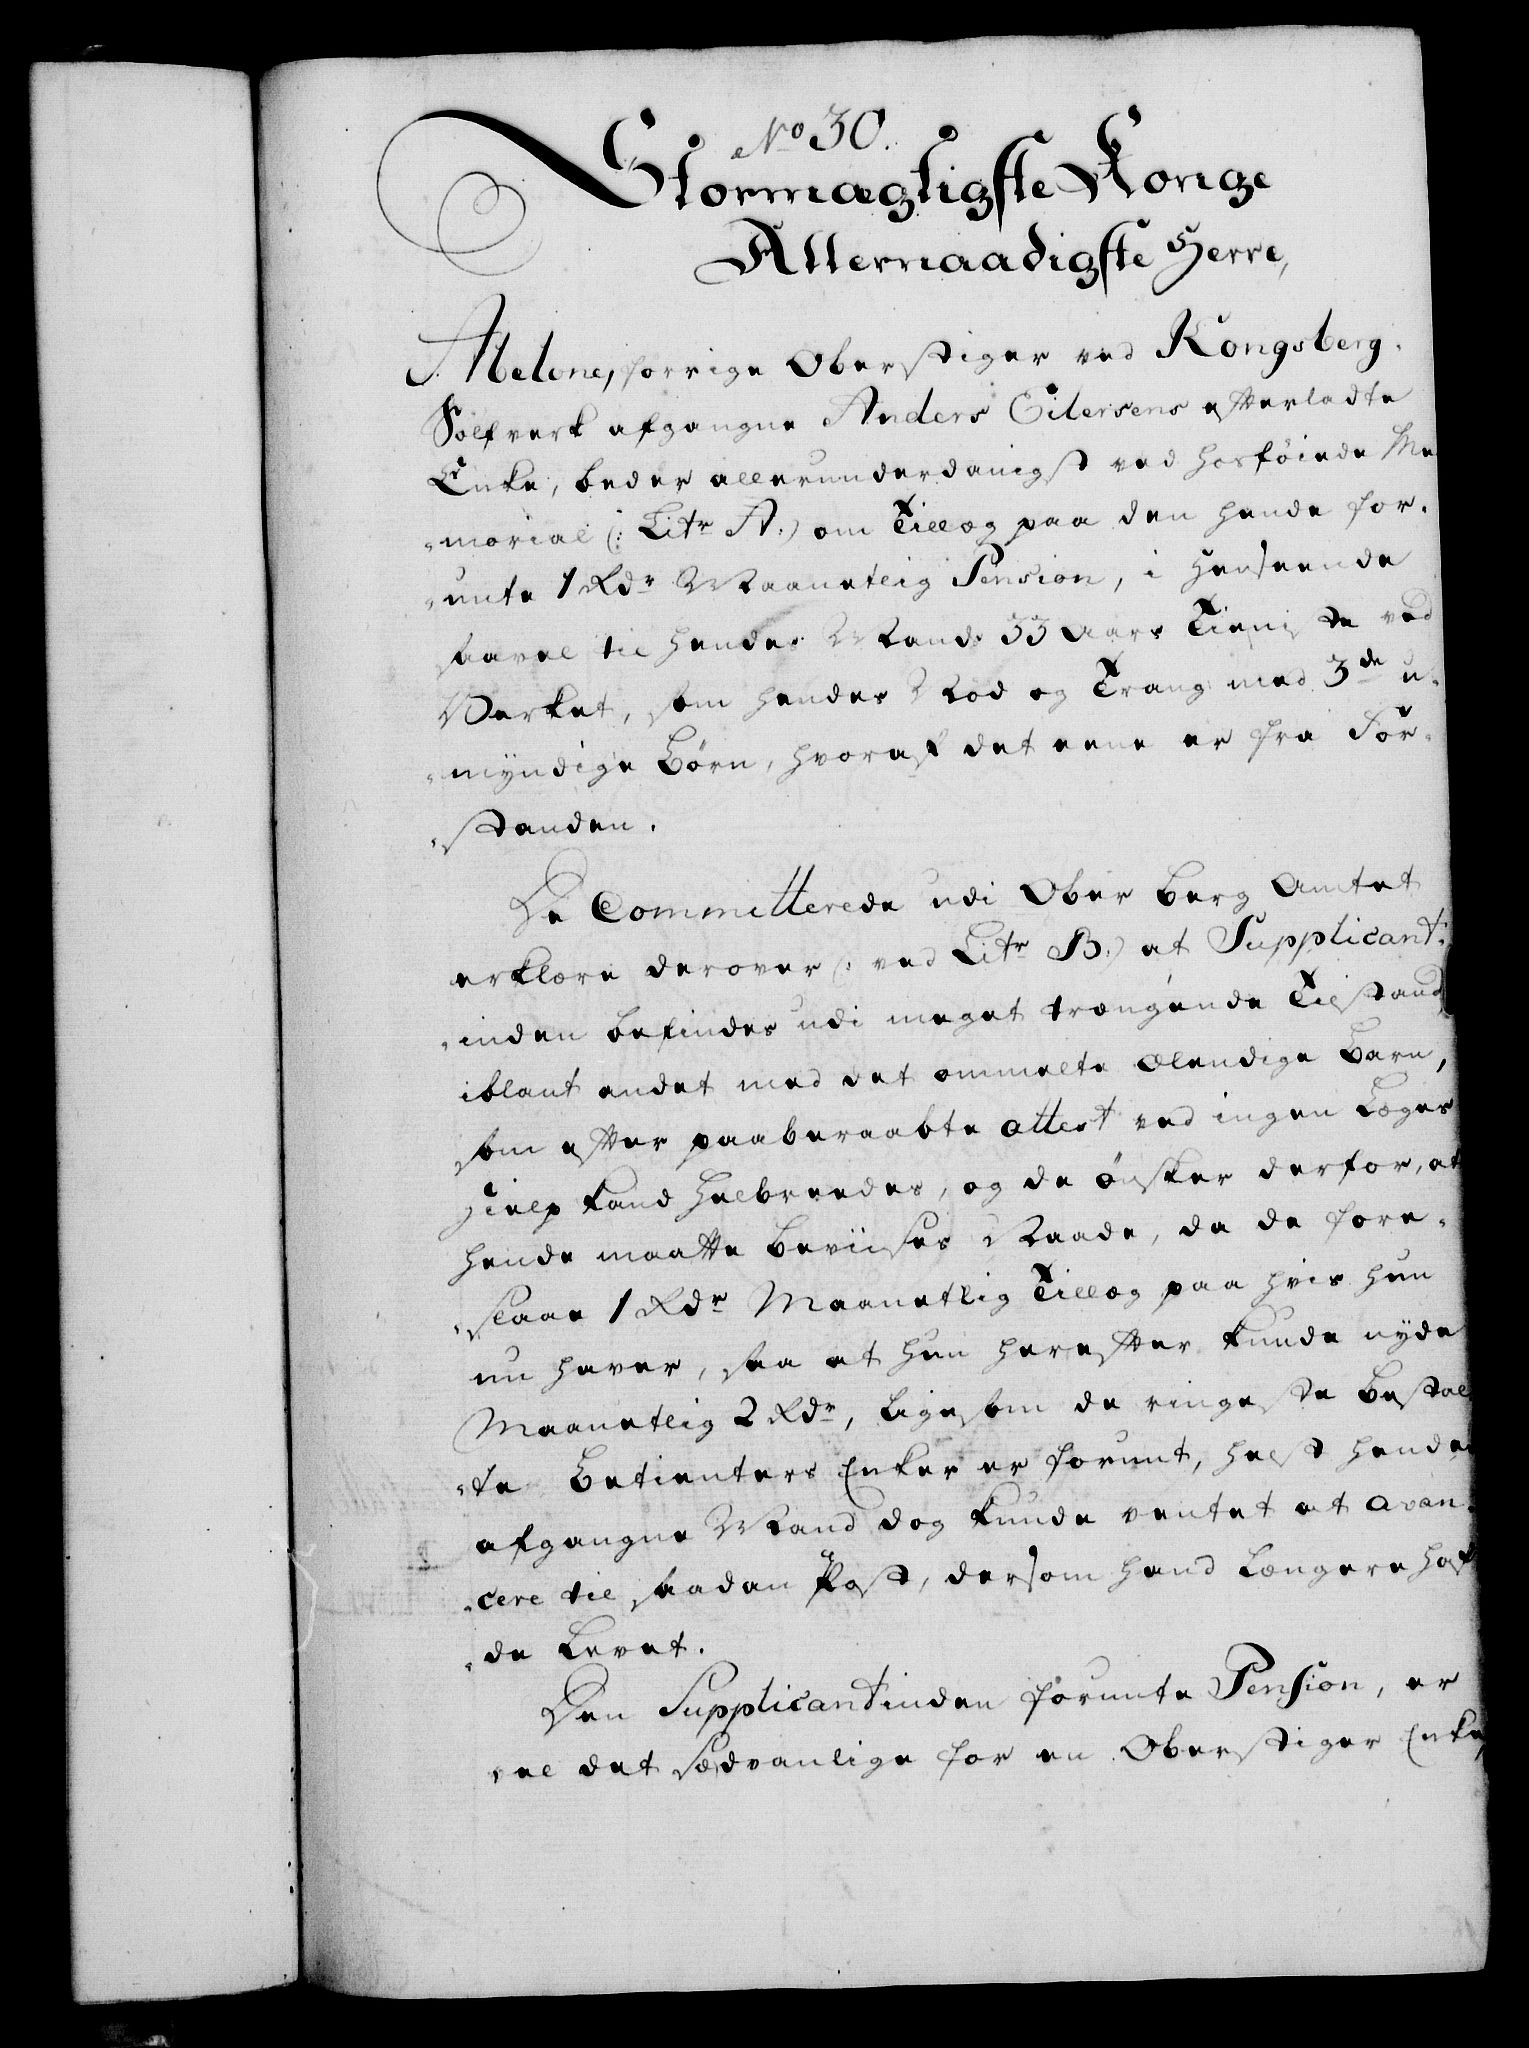 No 30.
Stormægtigste Konge
Allernaadigste Herre,
Abelone, forrige Oberstiger ved Kongsberg
Sølfverk afgangne Anders Eilersens efterladte
Enke, beder allerunderdanigst ved hosføiede Me
-morial (: Litr A.) om Tillæg paa den hende for-
-unte 1 Rdr Maanetlig Pension, i Henseende
saavel til hendes Mands 33 Aars Tieniste ved
Verket, som hendes Nød og Trang med 3de u-
-myndige Børn, hvoraf det eene er fra For-
-standen.
De Committerede udi Ober Berg Amtet
erklære derover (: ved Litr B.) at Supplicant-
-inden befindes udi meget trængende Tilstand
iblant andet med det ommelte Elendige Barn,
som efter paaberaabte Attest ved ingen Læges
Hielp kand helbreedes, og de ønsker derfor, at
hende maatte beviises Naade, da de fore-
-slaae 1 Rdr Maanetlig Tillæg paa hvis hun
nu haver, saa at hun herefter kunde nyde
Maanetlig 2 Rdr, ligesom de ringeste Bestal
-te Betienters Enker er forunt, helst hendes
afgangne Mand dog kunde ventet at avan-
-cere til saadan Post, dersom hand længere haf
-de levet.
Den Supplicantinden forunte Pension, er
vel det sædvanlige for en Oberstiger Enke,